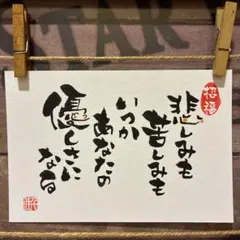 悲しみも
苦しみも
いつか
あなたの
優しさに
なる
招福
STAR